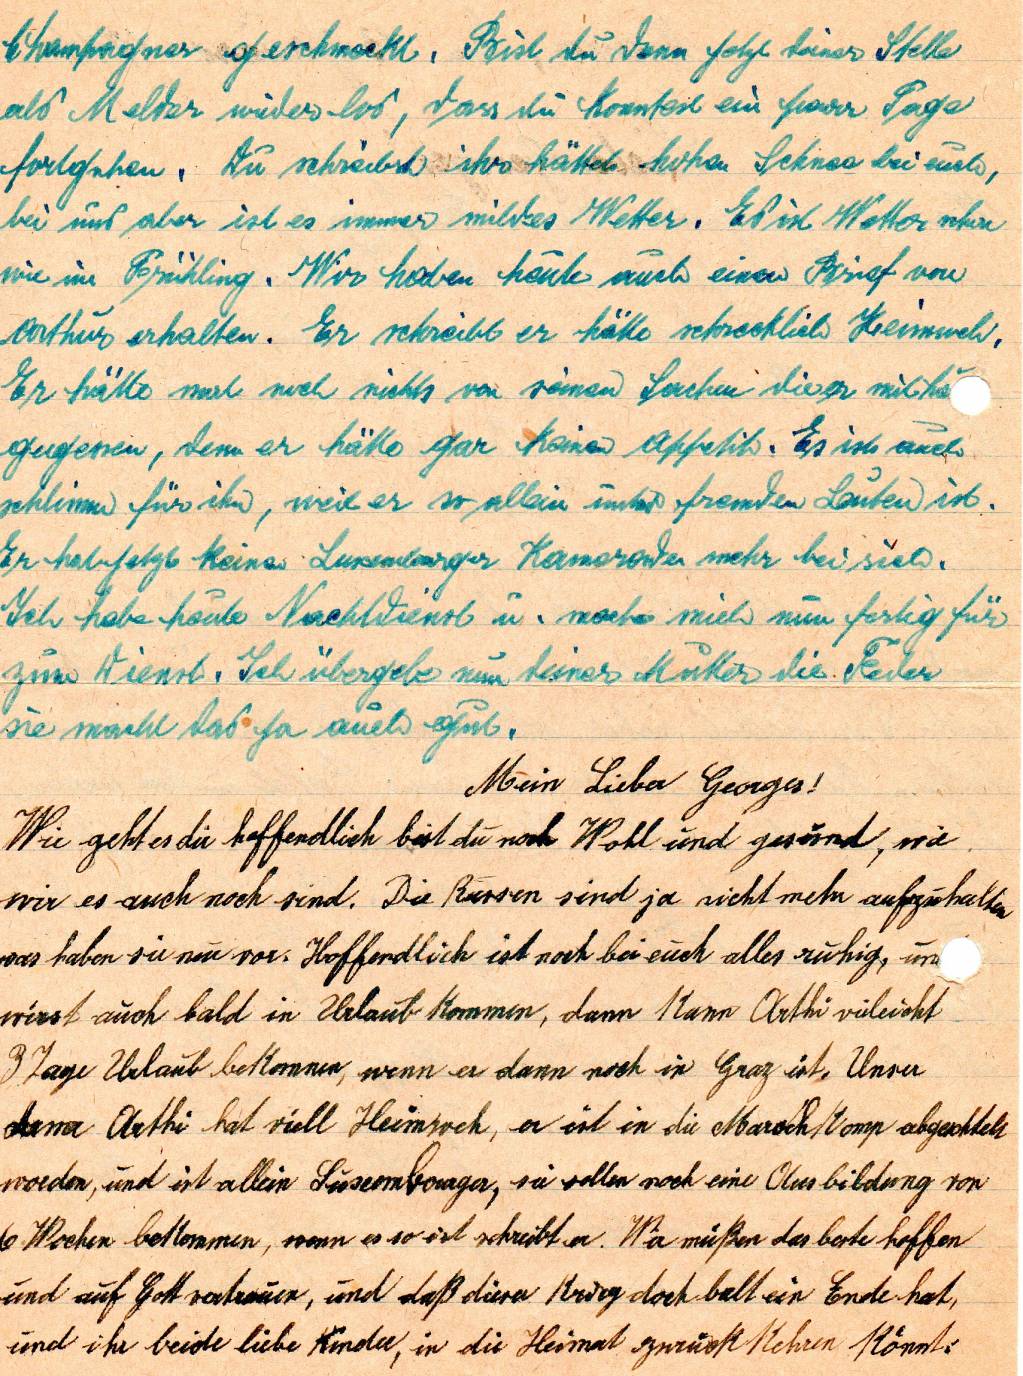 Champagner geschmeckt. Bist du denn jetzt deiner Stelle
als Melder wieder los, dass du konntest ein paar Tage
fortgehen. Du schreibst ihr hättet hohen Schnee bei euch,
bei uns aber ist es immer mildes Wetter. Es ist Wetter schon
wie im Frühling. Wir haben heute auch einen Brief von
Arthur erhalten. Er schreibt er hätte schrecklich Heimweh.
Er hätte mal noch nichts von seinen Sachen die er mit ha
gegessen, denn er hätte gar keinen Appetit. Es ist auch
schlimm für ihn, weil er so allein unter fremden Leuten ist.
Er hat jetzt keine Luxemburger Kameraden mehr bei sich.
Ich habe heute Nachtdienst u. mache mich nun fertig für
zum Dienst. Ich übergebe nun deiner Mutter die Feder
sie macht das ja auch gut.
Mein Lieber Georges!
Wie geht es dir hoffendlich bist du noch Wohl und gesund, wie
wir es auch noch sind. Die Russen sind ja nicht mehr aufzuhalten
was haben sie neu vor. Hoffendlich ist noch bei euch alles ruhig, und
wirst auch bald in Urlaub kommen, dann kann Arthi vieleicht
3 Tage Urlaub bekommen, wenn er dann noch in Graz ist. Unser
armer Arthi hat viell Heimweh, er ist in die Marsch Komp abgestellt
worden, und ist allein Luxembourger, sie sollen noch eine Ausbildung von
6 Wochen bekommen, wenn es so ist schreibt er. Wir müßen das beste hoffen
und auf Gott vertrauen, und daß dieser Krieg doch balt ein Ende hat,
und ihr beide liebe Kinder, in die Heimat zurück kehren könnt.